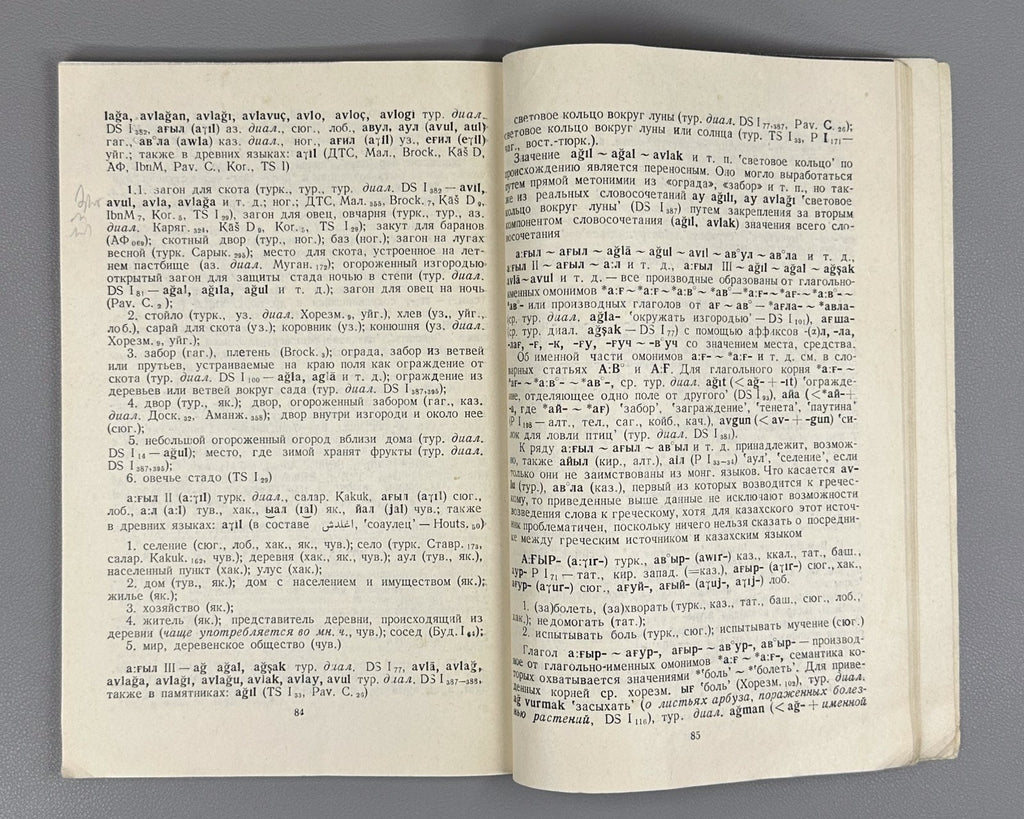 lağa, avlağan, avlağı, avlavuç, avlo, avloç, avlogı тур. диал.
DS I 382, ағыл (aɣıl) аз. диал., сюг., лоб., авул, аул (avul, aul)
гаг., ав°ла (awla) каз. диал., ног., ағил (aɣil) уз., еғил (eɣil)
уйг.; также в древних языках: aɣıl (ДТС, Мал., Brock., Kāš D,
АФ, IbnM, Pav. C., Kor., TS I)
1.1. загон для скота (турк., тур., тур. диал. DS I 382 — avıl,
avul, avla, avlağa и т. д.; ног.; ДТС, Мал. 355, Brock. 7, Kāš D 9,
IbnM 7, Kor. 5, TS I 29), загон для овец, овчарня (турк., тур., аз.
диал. Каряг. 324, Kāš D 9, Kor. 5, TS I 29); закут для баранов
(АФ 069); скотный двор (тур., ног.); баз (ног.); загон на лугах
весной (турк. Сарык. 295); место для скота, устроенное на лет-
нем пастбище (аз. диал. Муган. 179); огороженный изгородью
открытый загон для защиты стада ночью в степи (тур. диал.
DS I 81 — ağal, ağıla, ağul и т. д.); загон для овец на ночь
(Pav. C. 2);
2. стойло (турк., уз. диал. Хорезм. 9, уйг.), хлев (уз., уйг.,
лоб.), сарай для скота (уз.); коровник (уз.); конюшня (уз. диал.
Хорезм. 9, уйг.);
3. забор (гаг.), плетень (Brock. 3); ограда, забор из ветвей
или прутьев, устраиваемые на краю поля как ограждение от
скота (тур. диал. DS I 100 — ağla, aglä и т. д.); ограждение из
деревьев или ветвей вокруг сада (тур. диал. DS I 387,395);
4. двор (тур., як.); двор, огороженный забором (гаг., каз.
диал. Доск. 32, Аманж. 358); двор внутри изгороди и около нее
(сюг.);
5. небольшой огороженный огород вблизи дома (тур. диал.
DS I 14 — ağul); место, где зимой хранят фрукты (тур. диал.
DS I 387,395);
6. овечье стадо (TS I 29)
а:ғыл II (a:ɣıl) турк. диал., салар. Kakuk, ағыл (aɣıl) сюг.,
лоб., а:л (a:l) тув., хак., ыал (ıal) як., йал (jal) чув.; также
в древних языках: aɣıl (в составе اغلدش, ʻсоаулецʼ — Houts. 50)
1. селение (сюг., лоб., хак., як., чув.); село (турк. Ставр. 173,
салар. Kakuk. 162, чув.); деревня (хак., як., чув.); аул (тув., як.),
населенный пункт (хак.); улус (хак.);
2. дом (тув., як.); дом с населением и имуществом (як.);
жилье (як.);
3. хозяйство (як.);
4. житель (як.); представитель деревни, происходящий из
деревни (чаще употребляется во мн. ч., чув.); сосед (Буд. I 64);
5. мир, деревенское общество (чув.)
а:ғыл III — ağ ağal, ağşak тур. диал. DS I 77, avlä, avlağ,
avlağa, avlağı, avlağu, avlak, avlay, avul тур. диал. DS I 387—388,
также в памятниках: ağıl (TS I 33, Pav. C. 26)
84
световое кольцо вокруг луны (тур. диал. DS I 77,387, Pav. C. 26);
световое кольцо вокруг луны или солнца (тур. TS I 33, P I 171—
чаг., вост.-тюрк.).
Значение ağıl ~ ağal ~ avlak и т. п. ʻсветовое кольцоʼ по
происхождению является переносным. Оно могло выработаться
путем прямой метонимии из «ограда», «забор» и т. п., но так-
же из реальных словосочетаний ay ağılı, ay avlağı ʻсветовое
кольцо вокруг луныʼ (DS I 387) путем закрепления за вторым
компонентом словосочетания (ağıl, avlak) значения всего сло-
восочетания
а:ғыл ~ ағыл ~ ağlā ~ ağul ~ avıl ~ ав°ул ~ ав°ла и т. д.,
а:ғыл II ~ ағыл ~ а:л и т. д., а:ғыл III ~ ağıl ~ ağal ~ ağşak
avlā ~ avul и т. д. — все производные образованы от глагольно-
именных омонимов *а:ғ ~ *а:ғ ~ *а:в° ~ *ав° — *а:ғ- ~ *ағ- ~ *а:в°- ~
*ав°- или производных глаголов от ағ ~ ав° — *ағла- ~ *авла-
(ср. тур. диал. ağla- ʻокружать изгородьюʼ — DS I 101), ағша-
(ср. тур. диал. ağşak — DS I 77) с помощью аффиксов -(а)л, -ла,
-лағ, -ғ, -к, -ғу, -ғуч ~ -в°уч со значением места, средства.
Об именной части омонимов а:ғ- ~ *а:ғ- и т. д. см. в сло-
варных статьях А:В° и А:Ғ. Для глагольного корня *а:ғ- ~
*ағ- ~ *а:в°- ~ *ав°-, ср. тур. диал. ağıt (< ağ- + -ıt) ʻогражде-
ние, отделяющее одно поле от другогоʼ (DS I 93), айа (< *ай- +
-а, где *ай- ~ *ағ) ʻзаборʼ, ʻзаграждениеʼ, ʻтенетаʼ, ʻпаутинаʼ
(P I 198 — алт., тел., саг., койб., кач.), avgun (< av- + -gun) ʻси-
лок для ловли птицʼ (тур. диал. DS I 381).
К ряду а:ғыл ~ ағыл ~ ав°ыл и т. д. принадлежит, возмож-
но, также айыл (кир., алт.), аіл (P I 33—34) ʻаулʼ, ʻселениеʼ, если
только они не заимствованы из монг. языков. Что касается av-
la (тур.), ав°ла (каз.), первый из которых возводится к гречес-
кому, то приведенные выше данные не исключают возможности
возведения слова к греческому, хотя для казахского этот источ-
ник проблематичен, поскольку ничего нельзя сказать о посредни-
ке между греческим источником и казахским языком
А:ҒЫР- (a:ɣır-) турк., ав°ыр- (awır-) каз., ккал., тат., баш.,
аур- P I 71 — тат., кир. запад. (=каз.), ағыр- (aɣır-) сюг., хак.,
ағур- (aɣur-) сюг., ағуй-, ағый- (aɣuj-, aɣıj-) лоб.
1. (за)болеть, (за)хворать (турк., каз., тат., баш., сюг., лоб.,
хак.); недомогать (тат.);
2. испытывать боль (турк., сюг.); испытывать мучение (сюг.)
Глагол а:ғыр- ~ ағур-, ағыр- ~ ав°ур-, ав°ыр- — производ-
ное от глагольно-именных омонимов *а:ғ ~ *а:ғ-, семантика ко-
торых охватывается значениями *ʻбольʼ ~ *ʻболетьʼ. Для приве-
денных корней ср. хорезм. ығ ʻбольʼ (Хорезм. 102), тур. диал.
ağ vurmak ʻзасыхатьʼ (о листьях арбуза, пораженных болез-
нью растений, DS I 116), тур. диал. ağman (< ağ- + именной
85